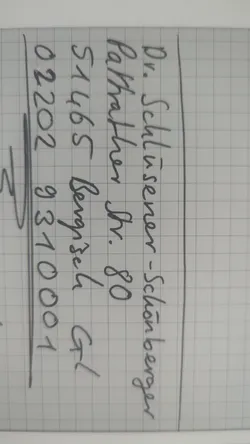 Dr. Schlüsener-Schönberger
Paffrather Str. 80
51465 Bergisch Gl
02202 9310001